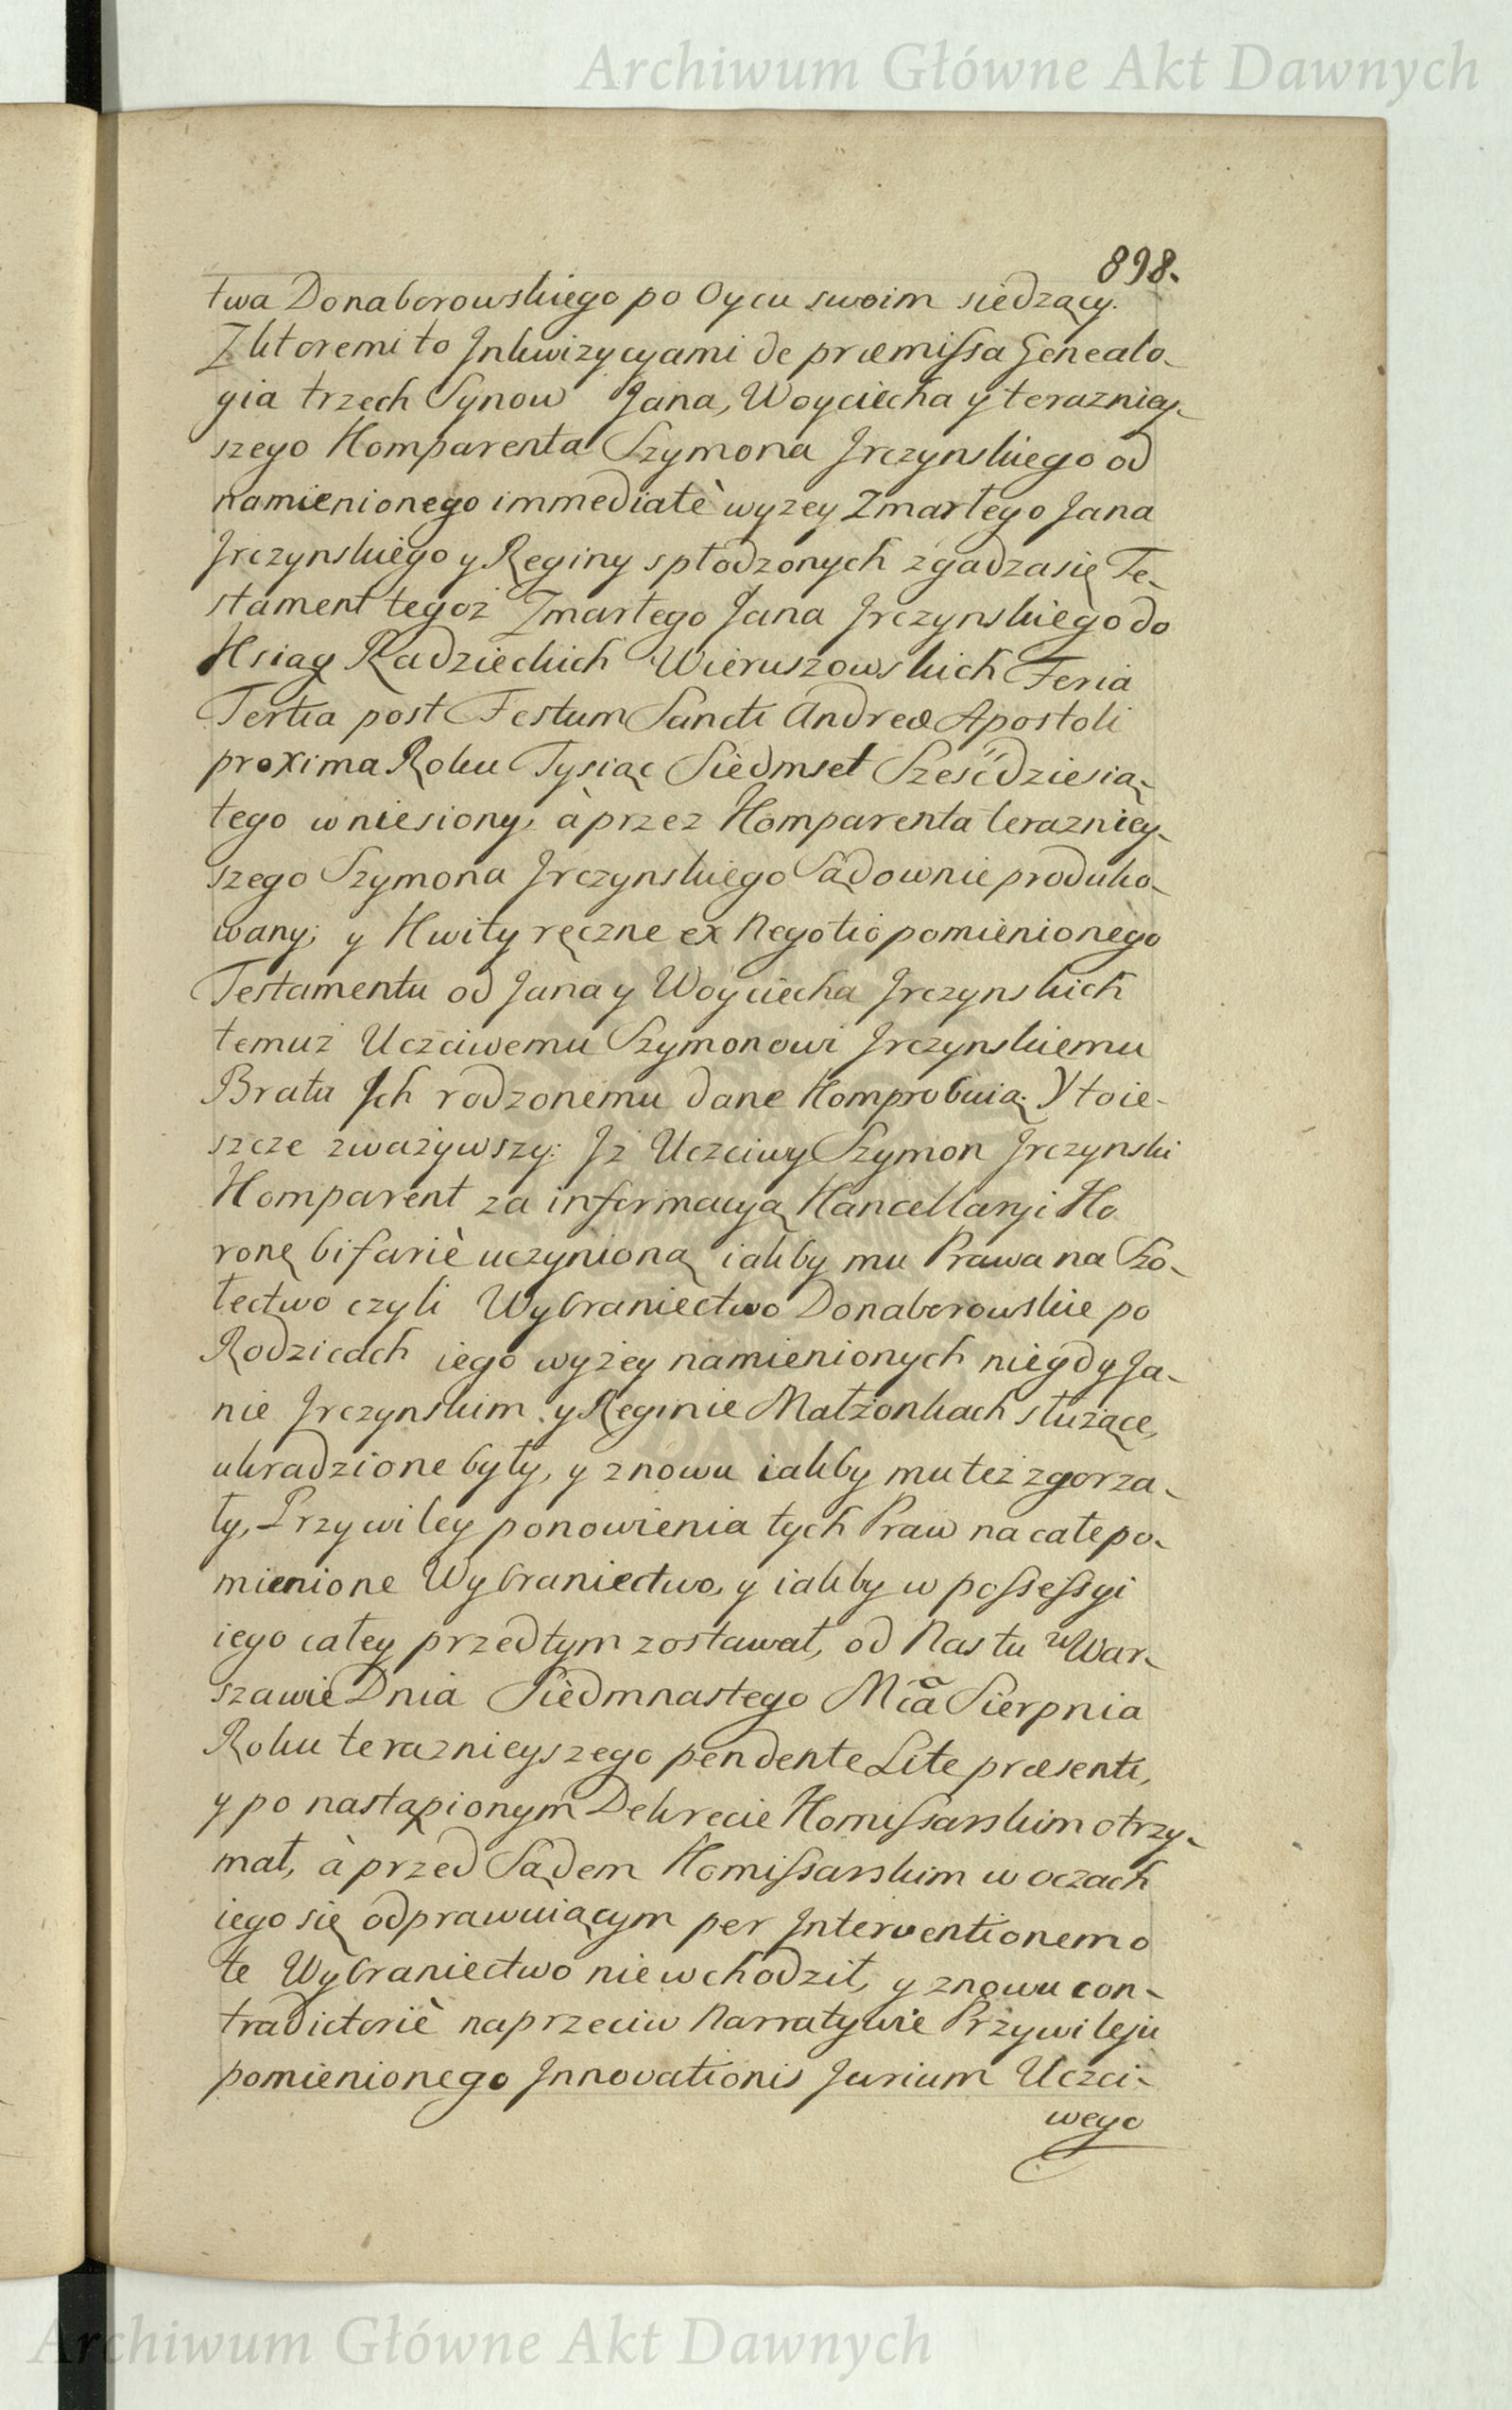 Archiwum Główne Akt Dawnych
898.
twa Donaborowskiego po Oycu swoim siedzący.
Z ktoremi to Inkwizycyami de præmissa Genealo-
gia trzech Synow Jana, Woyciecha y terazniey-
szego Komparenta Szymona Jrczynskiego od
namienionego immediatè wyzey Zmarłego Jana
Jrczynskiego y Reginy spłodzonych zgadza się Te-
stament tegoż Zmarłego Jana Jrczynskiego do
Ksiąg Radzieckich Wieruszowskich Feria
Tertia post Festum Sancti Andreæ Apostoli
proxima Roku Tysiąc Siedmset Sześćdziesią-
tego wniesiony, à przez Komparenta terazniey-
szego Szymona Jrczynskiego Sądownie produko-
wany; y Kwity ręczne ex Negotio pomienionego
Testamentu od Jana y Woyciecha Jrczynskich
temuż Uczciwemu Szymonowi Jrczynskiemu
Bratu Ich rodzonemu dane Komprobuią. Y to ie-
szcze zważywszy: Jż Uczciwy Szymon Jrczynski
Komparent za informacyą Kancellaryi Ko
ronę bifariè uczynioną iakby mu Prawa na Szo-
łectwo czyli Wybraniectwo Donaborowskie po
Rodzicach iego wyżey namienionych niegdy Ja-
nie Jrczynskim y Reginie Małżonkach służące,
ukradzione były, y znowu iakby mu też zgorza-
ły, Przywiley ponowienia tych Praw na całe po-
mienione Wybraniectwo, y iakby w possessyi
iego całey przedtym zostawał, od Nas tu w War-
szawie Dnia Siedmnastego Mca Sierpnia
Roku teraznieyszego pendente Lite præsenti,
y po nastąpionym Dekrecie Komissarskim otrzy-
mał, à przed Sądem Komissarskim w oczach
iego się odprawuiącym per Interventionem o
te Wybraniectwo nie wchodził, y znowu con-
tradictoriè naprzeciw Narratywie Przywileju
pomienionego Innovationis Jurium Uczci-
wego
Archiwum Główne Akt Dawnych